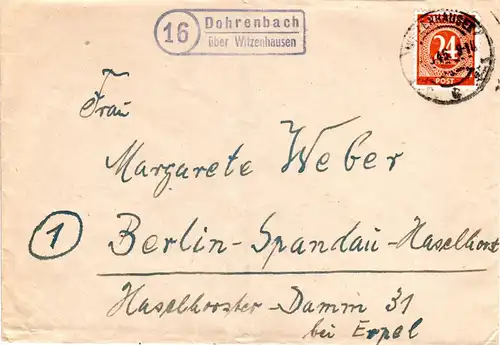 16 Dohrenbach
über Witzenhausen
WITZENHAUSEN
24
POST
Frau
Margarete Weber
1 Berlin-Spandau-Haselhorst
Haselhorster-Damm 31
bei Erpel